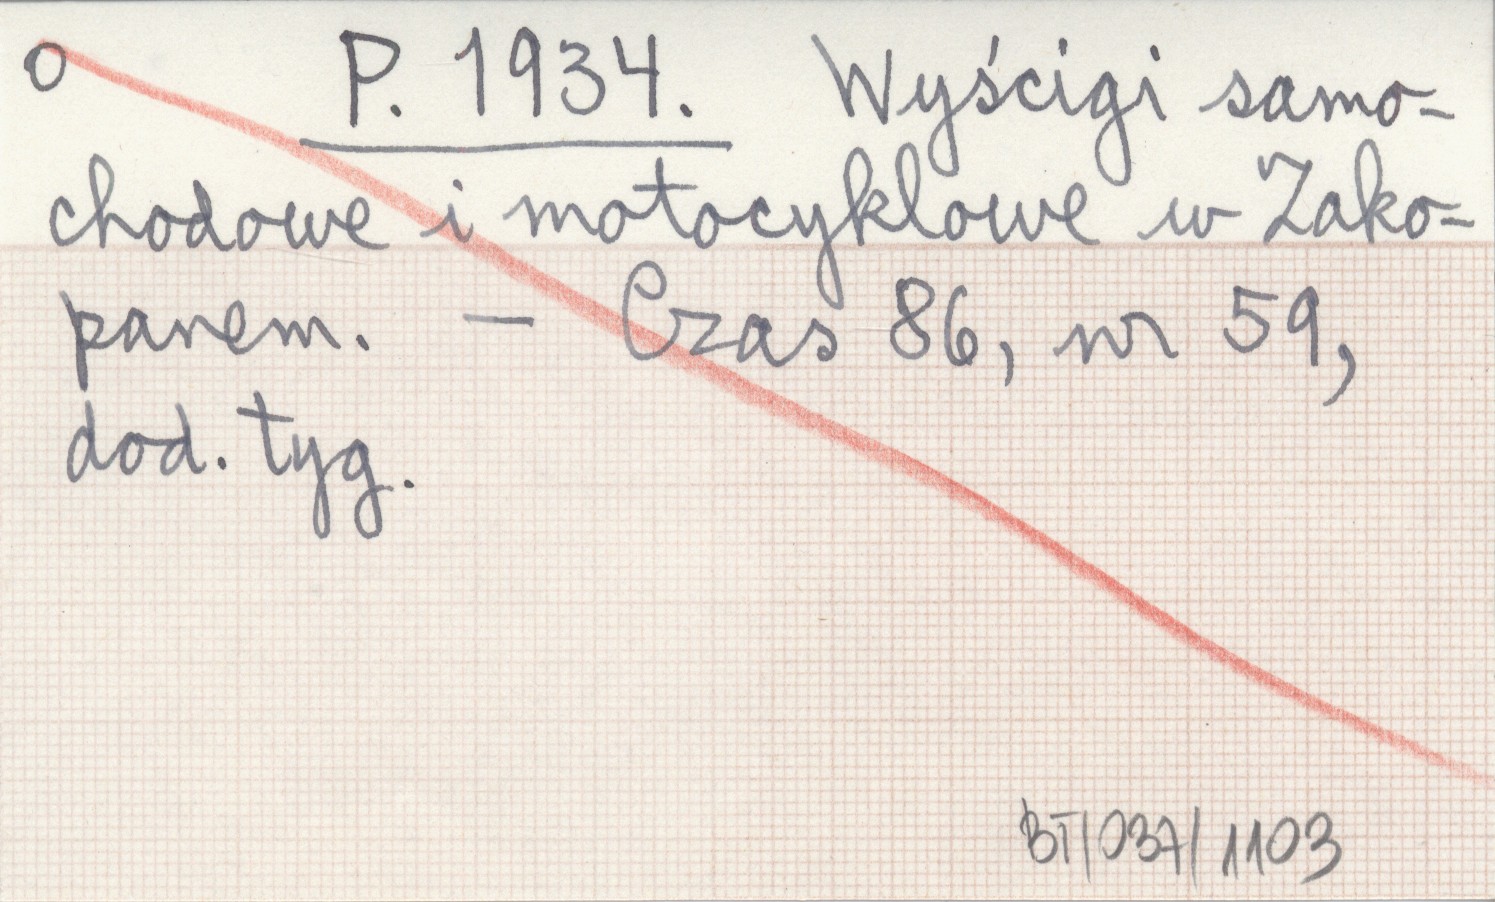 O P. 1934. Wyścigi samo=
chodowe i motocyklowe w Zako=
panem. — Czas 86, nr 59,
dod. tyg.
BT/037/1103